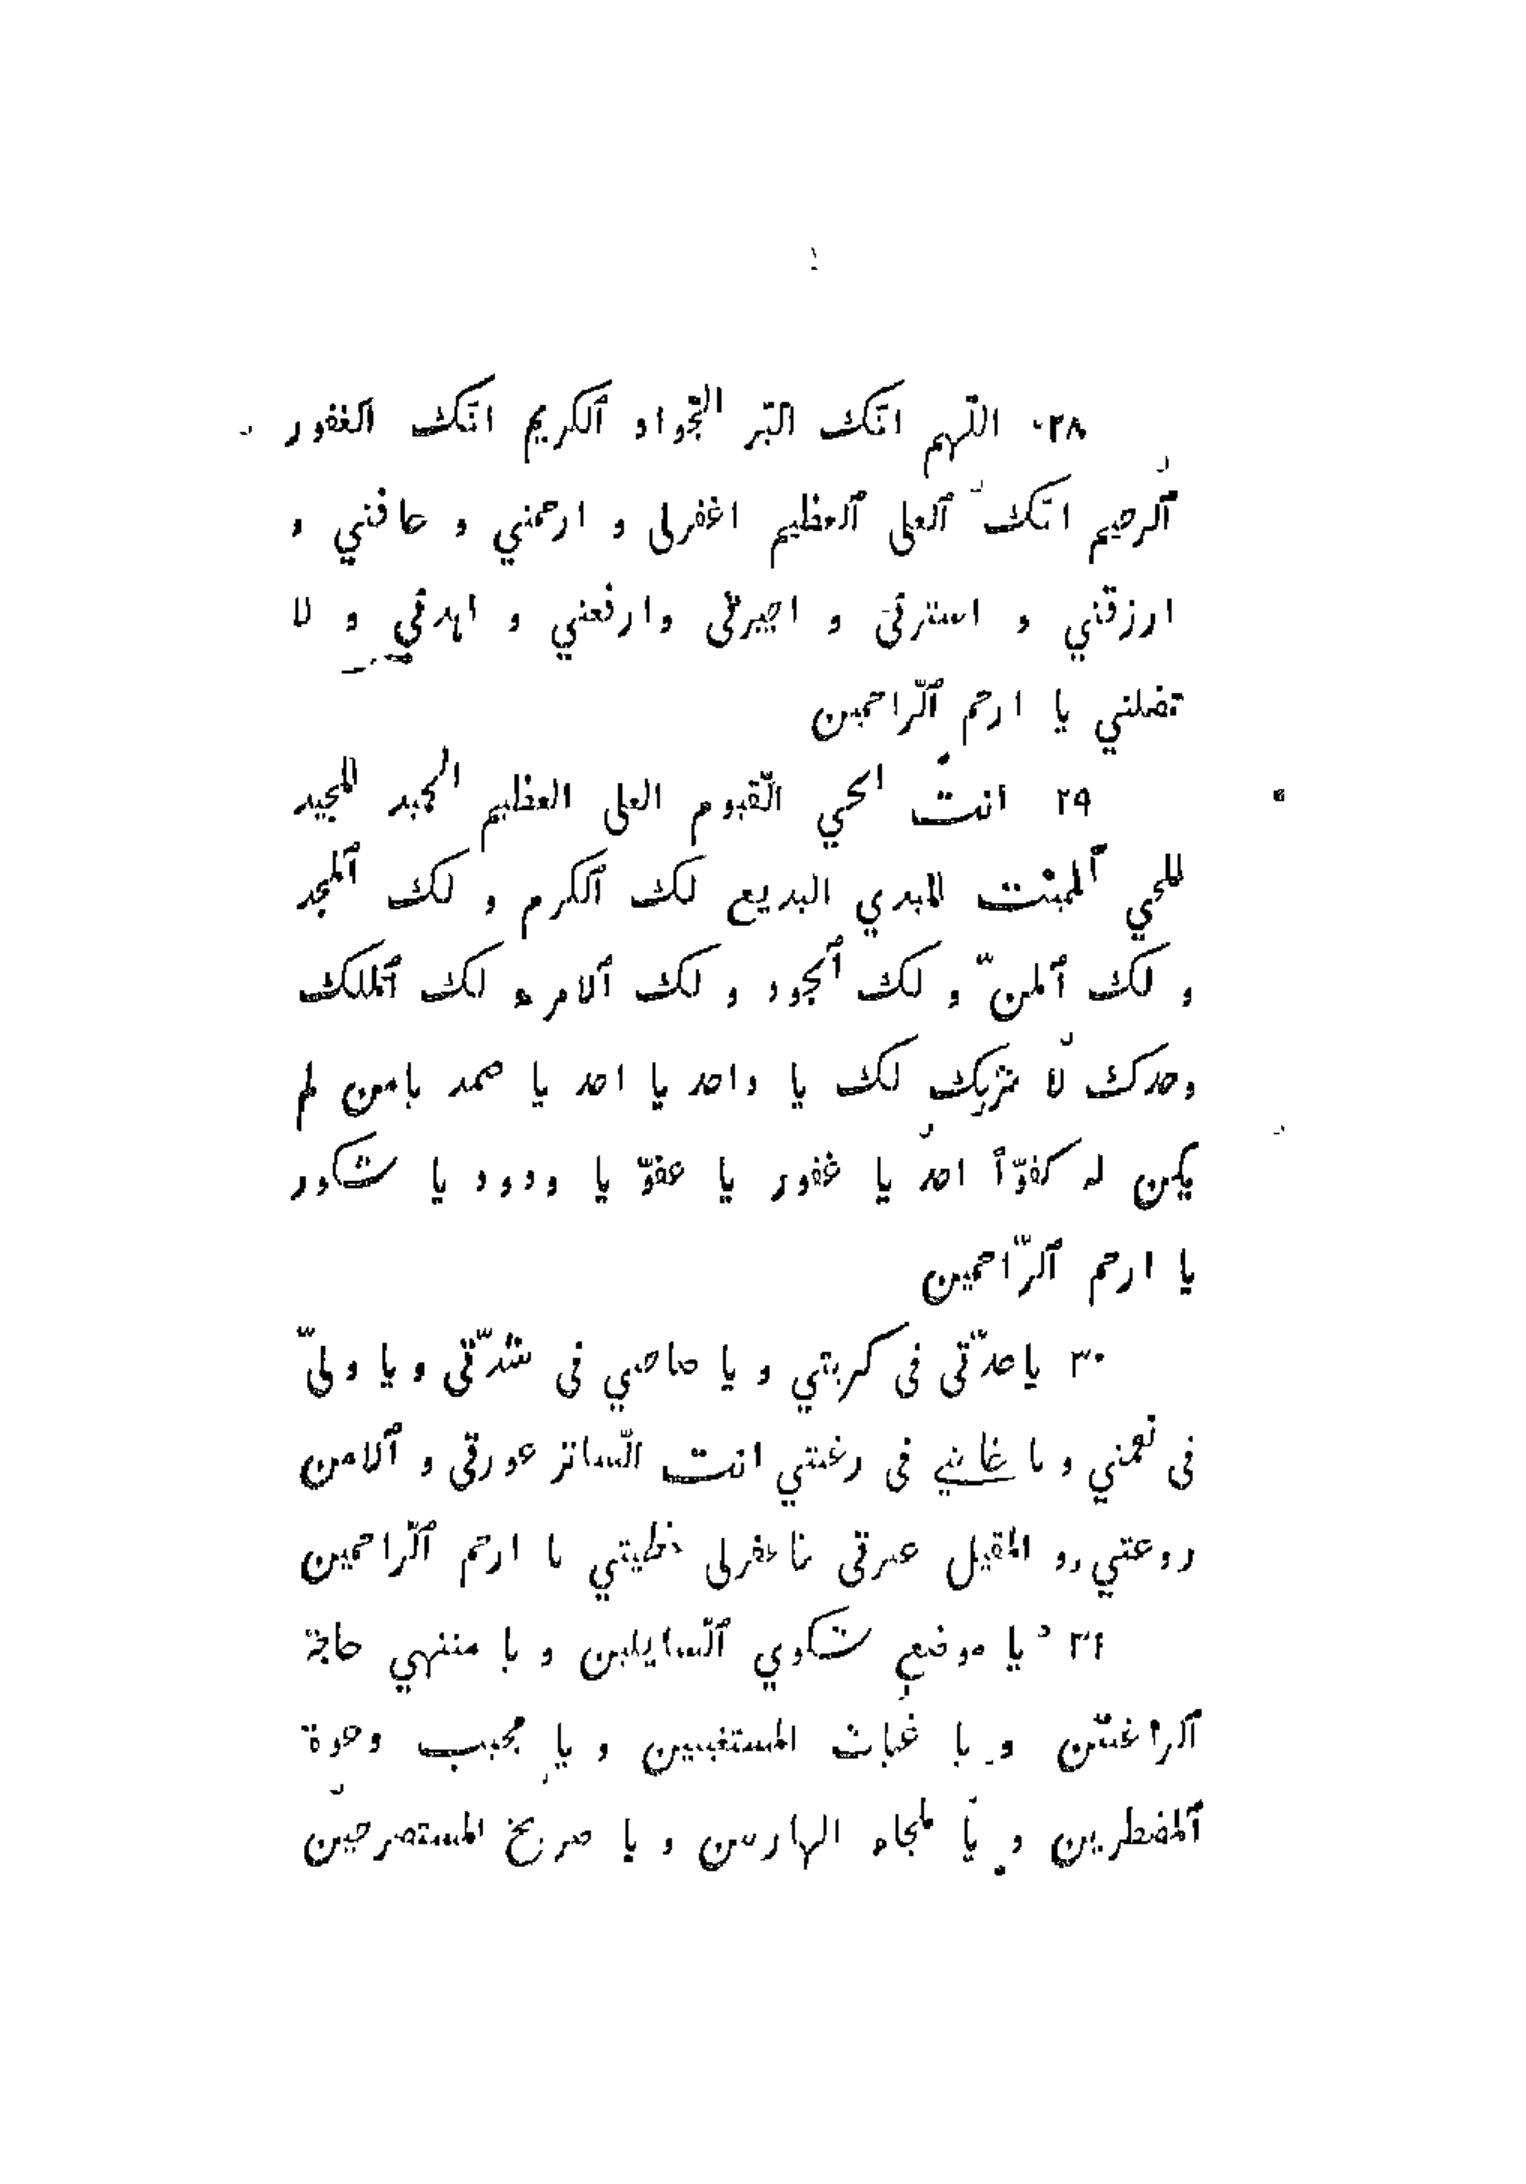 ٢٨ اللّهم انّك البّر الجّواد ٱلكريم انّك الغفور
ٱلرحيم انّك ٱلعلى ٱلعظيم اغفرلى و ارحمني و عافني و
ارزقني و استرنى و اجبرنى وارفعني و اهدني و لا
تضلني يا ارحم ٱلّراحمين
٢٩ انت الحي الّقيوم العلى العظيم الحميد المجيد
المحي ٱلمميت المبدي البديع لك ٱلكرم و لك ٱلمجد
و لك ٱلمنّ و لك ٱلجود و لك ٱلامر و لك ٱلملك
وحدك لا شريك لك يا واحد يا احد يا صمد يامن لم
يكن له كفوّاً احد يا غفور يا عفوّ يا ودود يا شكور
يا ارحم ٱلرّاحمين
٣٠ ياعدّتى فى كربتي و يا صاحبي فى شدّتى و يا ولىّ
فى نعمتي و يا غايتي فى رغبتي انت الّساتر عورتى و ٱلامن
روعتي و المقيل عبرتى فاغفرلى خطيتي يا ارحم ٱلّراحمين
٣١ يا موضع شكوي ٱلّسايلين و يا منتهي حاجة
ٱلراغبين و يا غياث المستغيبين و يا مجيب دعوة
ٱلمضطرين و يا ملجاء الهاربين و يا صريخ المستصرخين